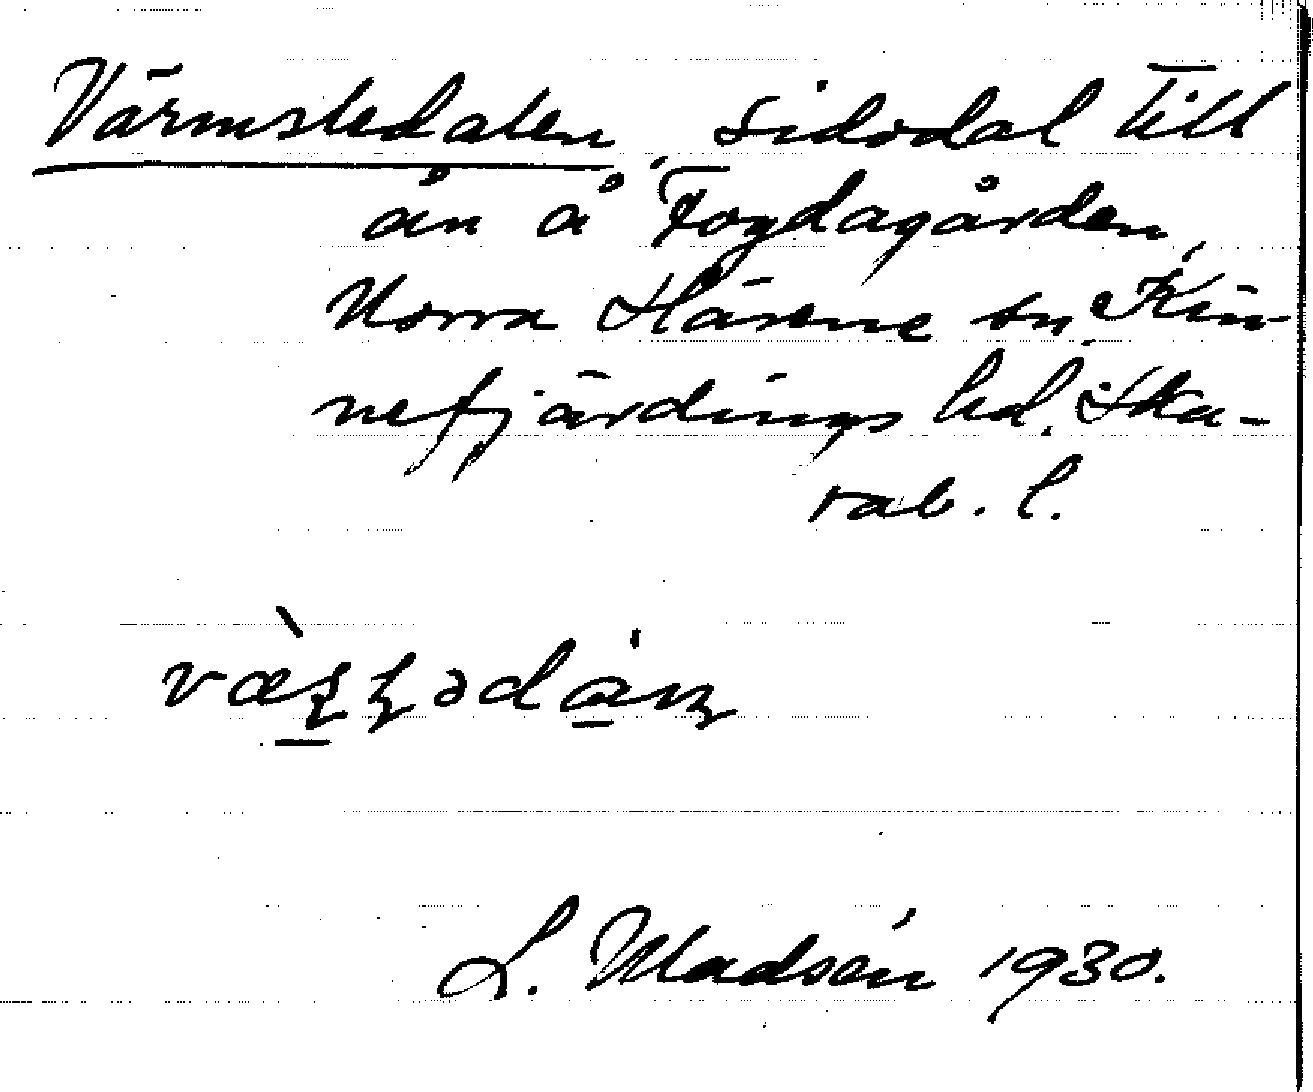 Värmsledalen, sidodal till
ån å Fogdagården,
Norra Härene sn, Kin-
nefjärdings hd. Ska-
rab. l.
L. Madsén 1930.